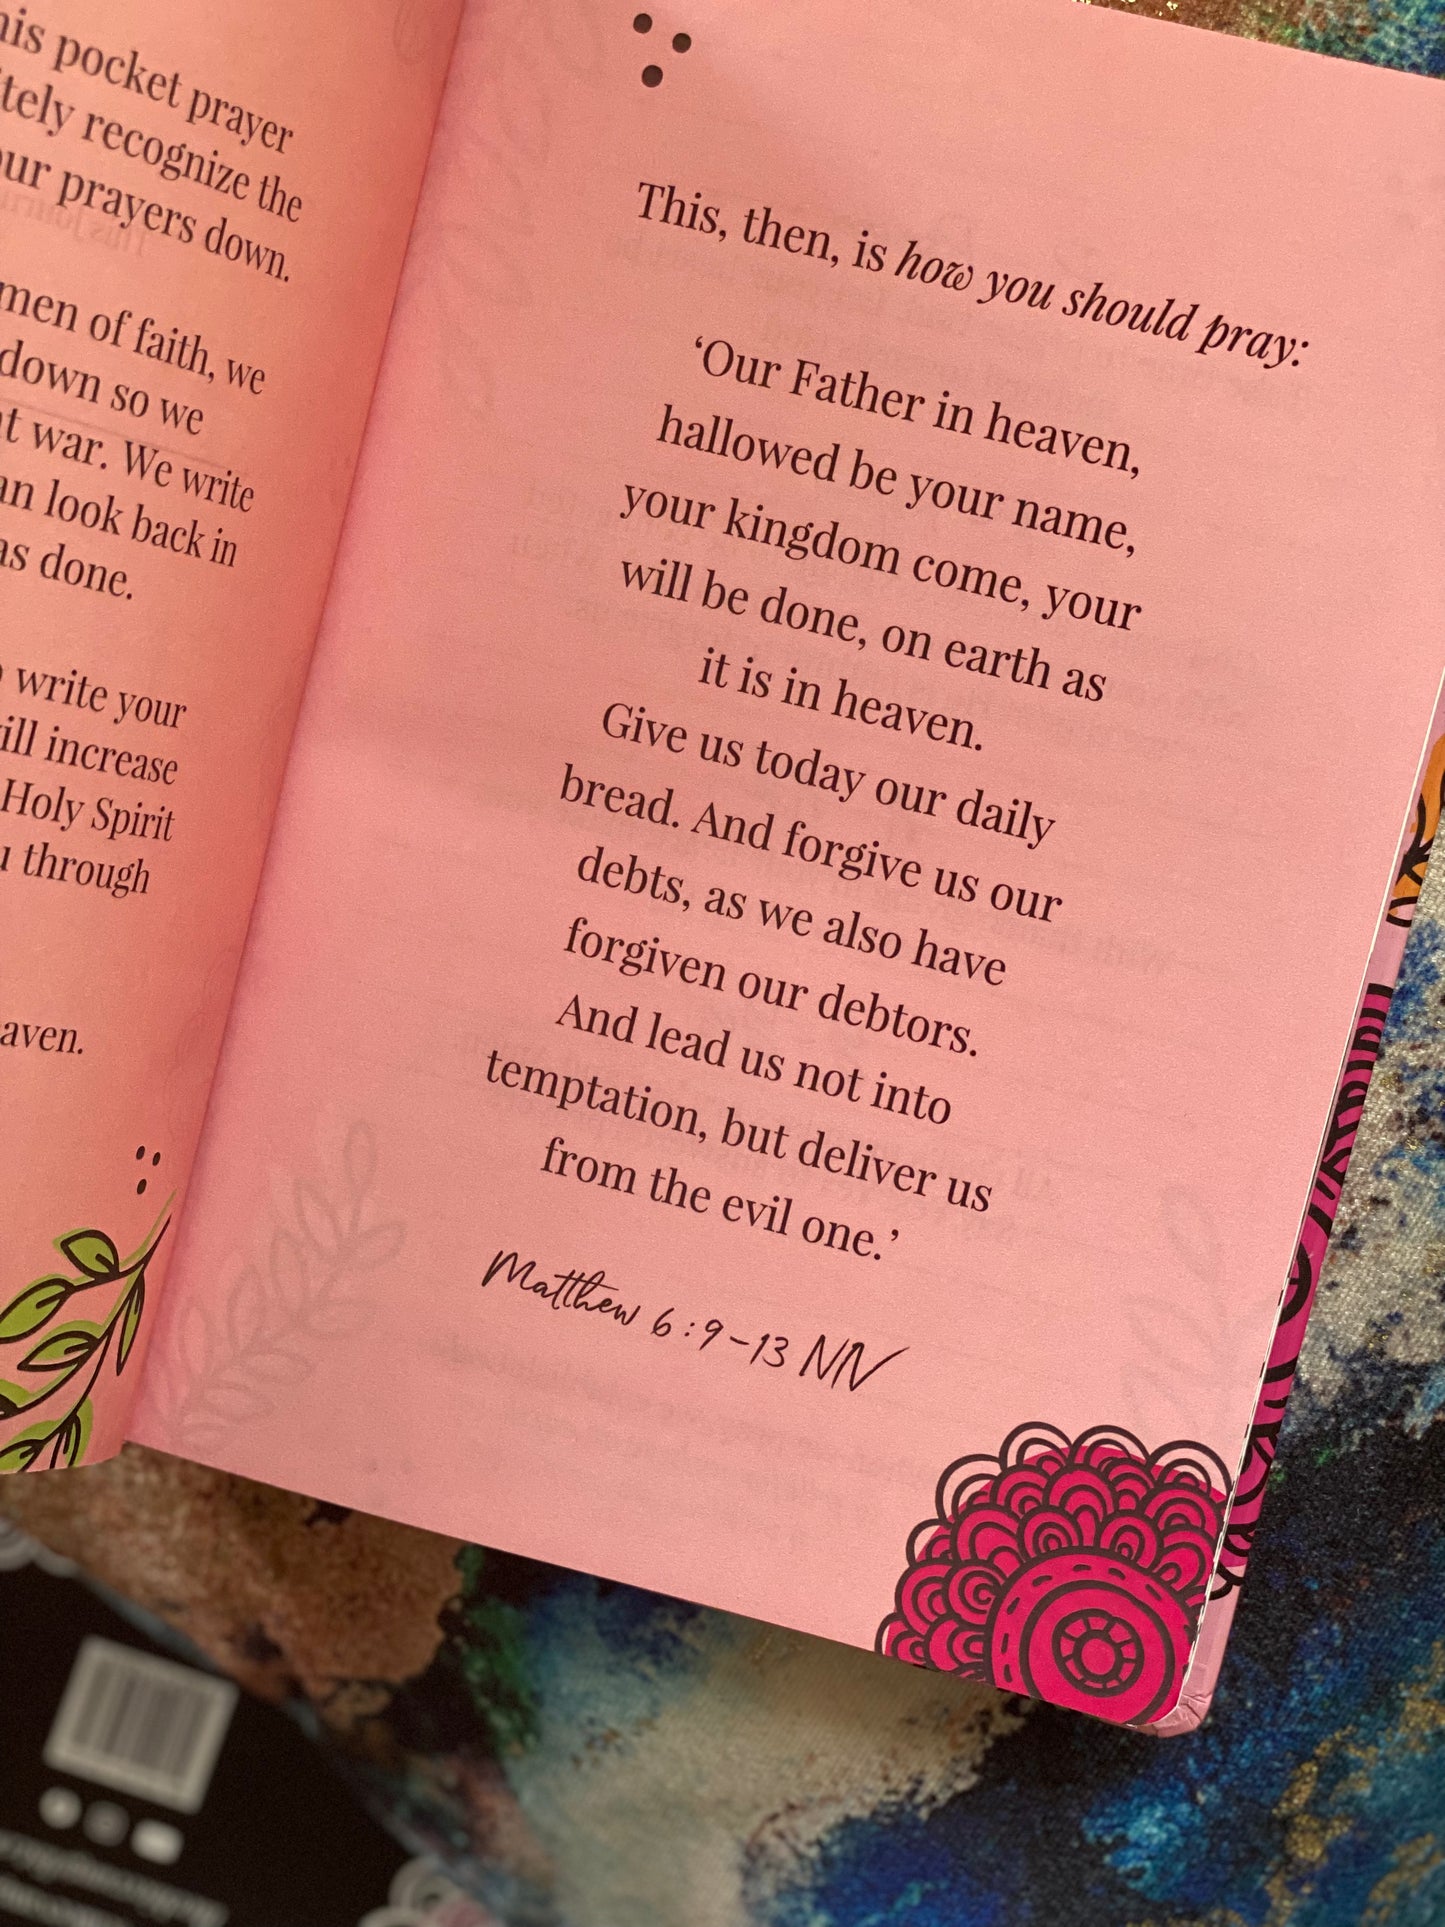 his pocket prayer
tely recognize the
our prayers down.
men of faith, we
down so we
at war. We write
an look back in
as done.
write your
ill increase
Holy Spirit
u through
eaven.
This, then, is how you should pray:
‘Our Father in heaven,
hallowed be your name,
your kingdom come, your
will be done, on earth as
it is in heaven.
Give us today our daily
bread. And forgive us our
debts, as we also have
forgiven our debtors.
And lead us not into
temptation, but deliver us
from the evil one.’
Matthew 6:9-13 NIV